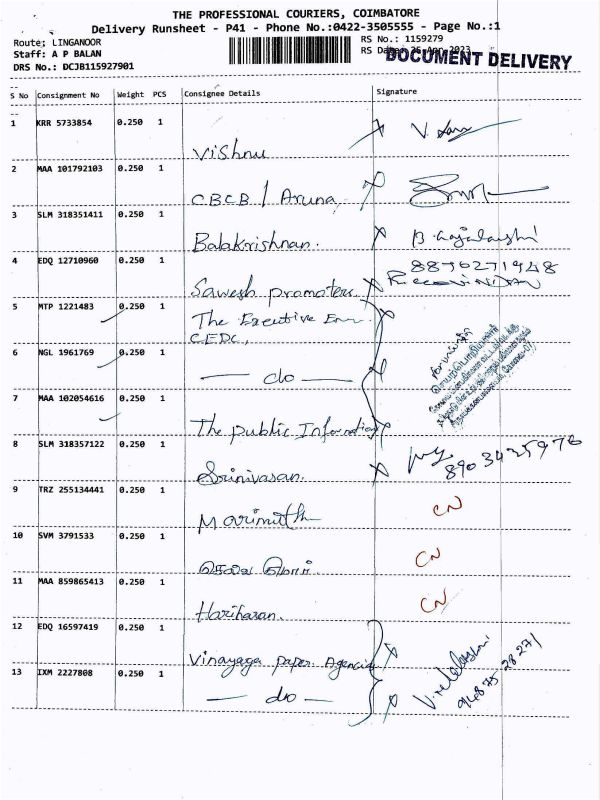 THE PROFESSIONAL COURIERS, COIMBATORE
Delivery Runsheet - P41 - Phone No.:0422-3505555 - Page No.:1
Route; LINGANOOR
RS No.: 1159279
Staff: A P BALAN
RS Date: 25-Apr-2023
DOCUMENT DELIVERY
DRS No.: DCJB115927901
S No Consignment No Weight PCS Consignee Details Signature
1 KRR 5733854 0.250 1 Vishnu
2 MAA 101792103 0.250 1 CBCB / Aruna,
3 SLM 318351411 0.250 1 Balakrishnan.
4 EDQ 12710960 0.250 1 Sawesh promoters
5 MTP 1221483 0.250 1 The Executive Enr.
CEDC,
6 NGL 1961769 0.250 1 — do —
7 MAA 102054616 0.250 1 The public Information
8 SLM 318357122 0.250 1 Srinivasan. 8903435976
9 TRZ 255134441 0.250 1 Marimuth CN
10 SVM 3791533 0.250 1 CN
11 MAA 859865413 0.250 1 Hariharan. CN
12 EDQ 16597419 0.250 1 Vinayaga paper Agencies
13 IXM 2227808 0.250 1 — do — 94875 28271